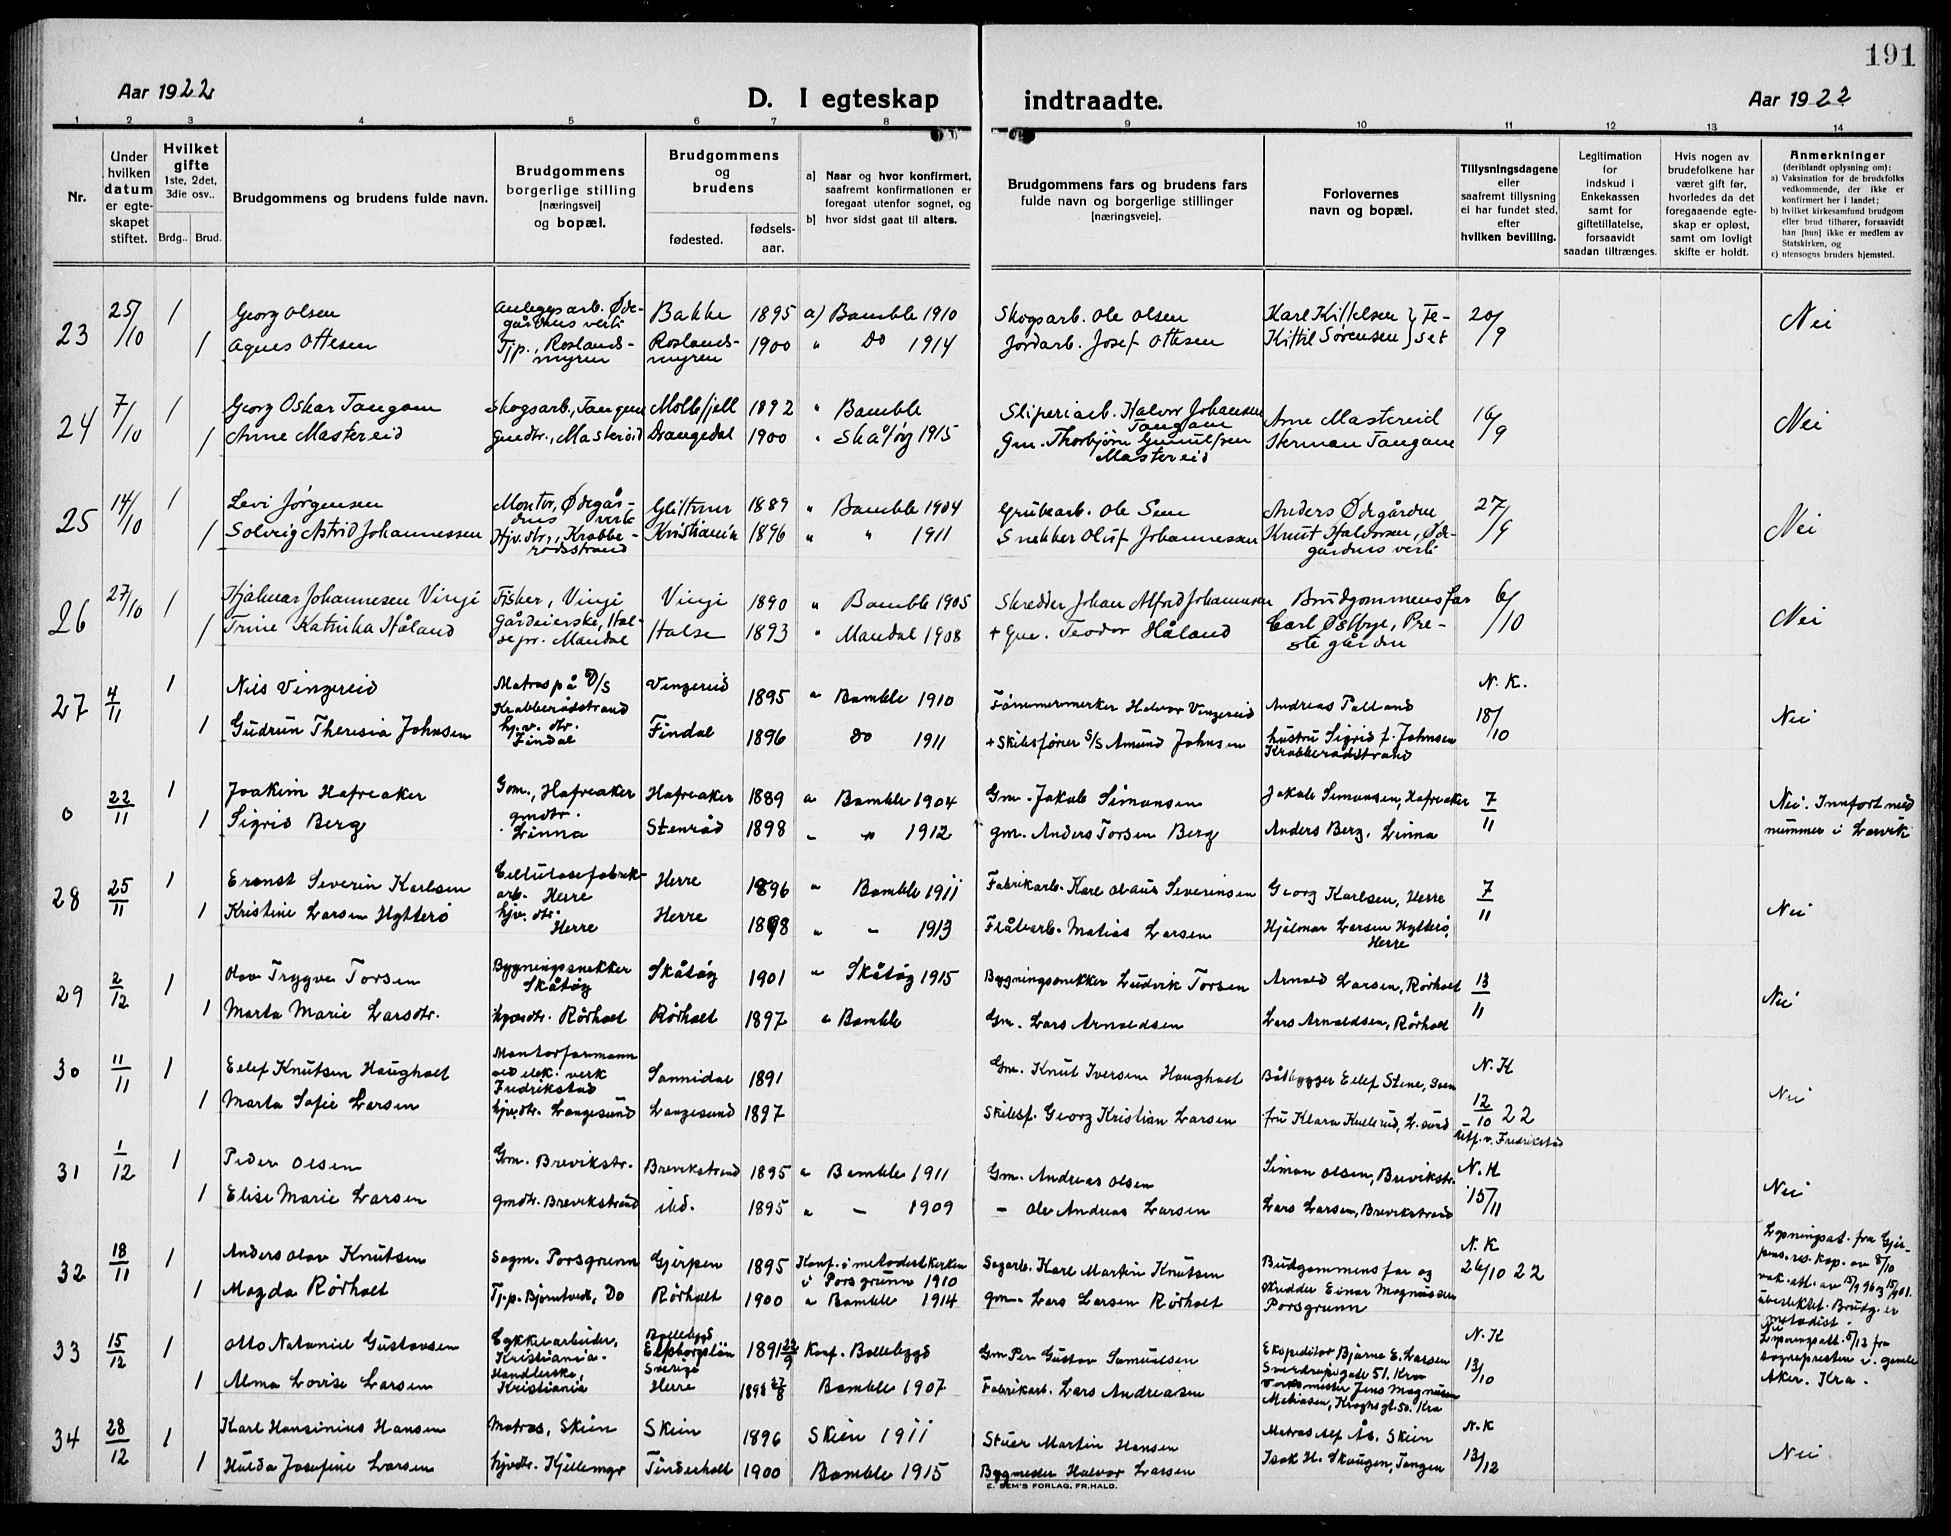 191
Aar 1922
D. I egteskap indtraadte.
Aar 1922
1 2 3 4 5 6 7 8 9 10 11 12 13 14
Nr.
Under hvilken datum er egteskapet stiftet.
Hvilket gifte
1ste, 2det, 3die osv..
Brdg.. Brud.
Brudgommens og brudens fulde navn.
Brudgommens borgerlige stilling [næringsvei] og bopæl.
Brudgommens og brudens
fødested.
fødselsaar.
a) Naar og hvor konfirmert, saafremt konfirmationen er foregaat utenfor sognet, og
b) hvor sidst gaat til alters.
Brudgommens fars og brudens fars fulde navn og borgerlige stillinger [næringsveie].
Forlovernes navn og bopæl.
Tillysningsdagene eller saafremt tillysning ei har fundet sted, efter hvilken bevilling.
Legitimation for indskud i Enkekassen samt for giftetillatelse, forsaavidt saadan tiltrænges.
Hvis nogen av brudefolkene har været gift før, hvorledes da det foregaaende egteskap er opløst, samt om lovligt skifte er holdt.
Anmerkninger
(deriblandt oplysning om):
a) Vaksination for de brudefolks vedkommende, der ikke er konfirmert her i landet;
b) hvilket kirkesamfund brudgom eller brud tilhører, forsaavidt han [hun] ikke er medlem av Statskirken, og
c) utensogns bruders hjemsted.
23 25/10 1 Georg Olsen Anlegsarb. Ødegårdens verk Bakke 1895 a) Bamble 1910 Skogsarb. Ole Olsen Karl Kittelsen } Feset 20/9 Nei
1 Agnes Ottesen Tjp., Roslandsmyren Roslandsmyren 1900 " Do 1914 Jordarb. Josef Ottesen Kittil Sørensen
24 7/10 1 Georg Oskar Tangane Skogsarb., Tangene Mollefjell 1892 " Bamble Sliperiarb. Halvor Johansen Tangane Arne Mastereid 16/9 Nei
1 Anne Mastereid Gmdtr., Mastereid Drangedal 1900 " Skåtøy 1915 Gm. Thorbjørn Gunulfsen Mastereid Herman Tangane
25 14/10 1 Levi Jørgensen Montør, Ødegårdens verk Glitterne 1889 " Bamble 1904 Grubearb. Ole Sem Anders Ødegården 27/9 Nei
1 Solveig Astrid Johannessen Hjv.dtr., Krabberødstrand Kristiania 1896 " " 1911 Snekker Oluf Johannessen Knut Halvorsen, Ødegårdens verk
26 27/10 1 Hjalmar Johannesen Vinje Fisker, Vinje Vinje 1890 " Bamble 1905 Skredder Johan Alfred Johannsen Brudgommens far 6/10 Nei
1 Trine Katrinka Håland Gårdeierske, Halse pr. Mandal Halse 1893 " Mandal 1908 + Gm. Teodor Håland Carl Østbye, Prestegården
27 4/11 1 Nils Vinjereid Matros på D/S Krabberødstrand Vinjereid 1895 a Bamble 1910 Tømmermerker Halvor Vinjereid Andreas Palland N. K. Nei
1 Gudrun Theresia Johnsen hjv. dtr. Findal Findal 1896 Do 1911 + Skibsfører S/S Amund Johnsen hustru Sigrid f. Johnsen Krabberødstrand 18/10
0 22/11 1 Joakim Hafreaker Gm., Hafreaker Hafreaker 1889 a Bamble 1904 Gm. Jakob Simonsen Jakob Simonsen, Hafreaker 7/11 Nei. Innført med nummer i Larvik
1 Sigrid Berg gmdtr. Linna Stenrød 1898 " " 1912 gm. Anders Torsen Berg Anders Berg, Linna
28 25/11 1 Ernst Severin Karlsen Cellulosefabrikarb. Herre Herre 1896 " Bamble 1911 Fabrikarb. Karl Olaus Severinsen Georg Karlsen, Herre 7/11 Nei
1 Kristine Larsen Hytterø hjv. dtr. Herre Herre 1898 " - 1913 Flåtearb. Matias Larsen Hjalmar Larsen Hytterø, Herre
29 2/12 1 Olav Trygve Torsen Bygningssnekker Skåtøy Skåtøy 1901 " Skåtøy 1915 Bygningssnekker Ludvik Torsen Arnold Larsen, Rørholt 13/11 Nei
1 Marta Marie Larsdtr. hjvdtr. Rørholt Rørholt 1897 a Bamble Gm. Lars Arnoldsen Lars Arnoldsen, Rørholt
30 11/11 1 Eilef Knutsen Haugholt Montørformann ved elek. verk Fredrikstad Sannidal 1891 Gm. Knut Iversen Haugholt Båtbygger Eilef Stene, N. K Nei
1 Marta Sofie Larsen hjvdtr. Langesund Langesund 1897 Skibsf. Georg Kristian Larsen fru Klara Kullerud, L.sund 12/10 22 Utf. v. Fredrikstad
31 1/12 1 Peder Olsen Gm. Brevikstr. Brevikstrand 1895 a Bamble 1911 Gm. Andreas Olsen Simon Olsen, Brevikstr. N. K Nei
1 Elise Marie Larsen gmdtr. Brevikstrand ibd. 1895 " - 1909 - Ole Andreas Larsen Lars Larsen, Brevikstrand 15/11
32 18/11 1 Anders Olav Knutsen Sagm. Porsgrunn Gjerpen 1895 Konf. i metodistkirken i Porsgrunn 1910 Sagarb. Karl Martin Knutsen Brudgommens far og N. K Løsningsat. fra Gjerpens res. kap. av 8/10
1 Magda Rørholt Tj.p. Bjørntvedt, Do Rørholt 1900 a Bamble 1914 gm. Lars Larsen Rørholt skredder Einar Magnussen Porsgrunn 26/10 22 vak. att. av ubeslektet. Brudg. er metodist. Nei
33 15/12 1 Otto Nataniel Gustavsen Cykkelarbeider, Kristiania. Bollebygd Elfsborgslän Sverige 1891 22/9 Konf. Bollebygd Gm Per Gustav Samuelsen Ekspeditør Bjarne E. Larsen Sverdrupsgate 51. Kra N. K Løsningsatt. 5/12 fra sogneprest en i gamle Aker. Kra.
1 Alma Lovise Larsen Handlerske, Kristiania Herre 1893 27/8 Bamble 1907 Fabrikarb. Lars Andreasen Verksmester Jens Magnusen Mathiasen, Kroghsgt. 50. Kra 13/10
34 28/12 1 Karl Hansinius Hansen Matros, Skien Skien 1896 Skien 1911 Stuer Martin Hansen Matros Alf Ås. Skien N. K Nei
1 Hulda Josefine Larsen hjvdtr. Kjellemyr Tinderholt 1900 Bamble 1915 Bygmester Halvor Larsen Isak H. Skaugen, Tangen 13/12
E. SEM'S FORLAG, FR.HALD.